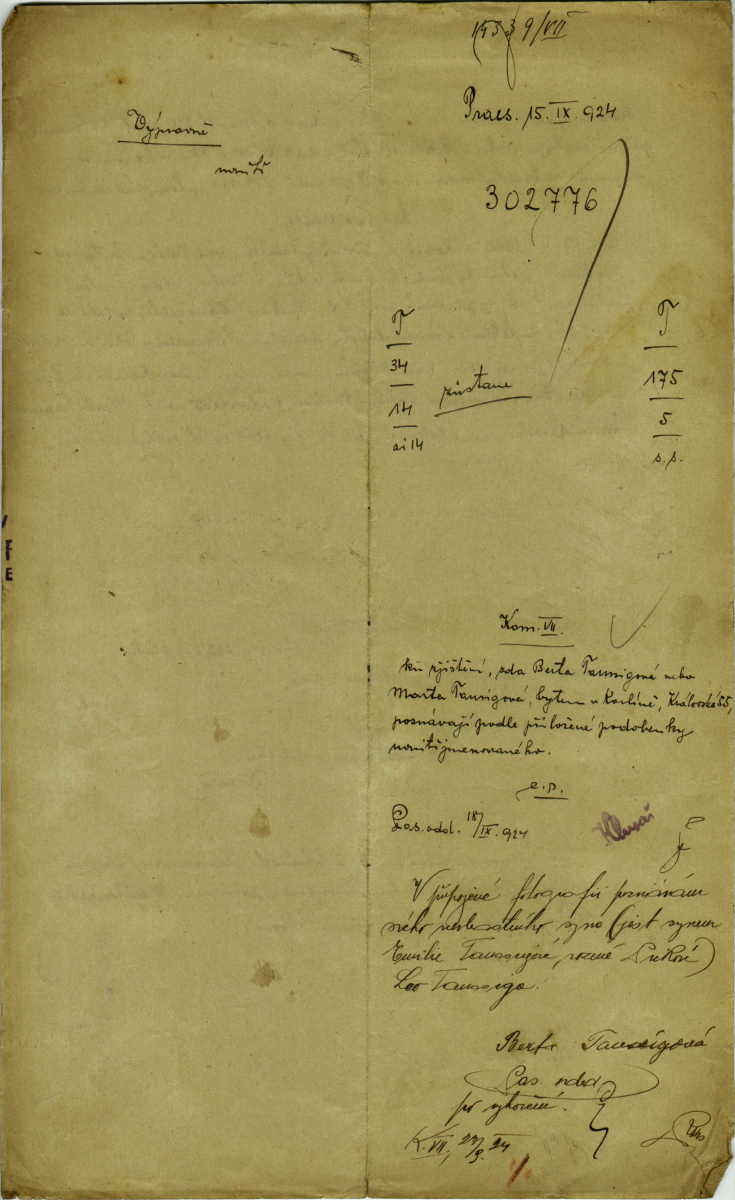 Výpravně
uvnitř
9/VII
Praes. 15. IX. 924
302776
T
34
14
ai 14
zůstane
T
175
5
s. s.
Kom. VII.
ku zjištění, zda Berta Taussigová nebo
Marta Taussigová, bytem v Karlíně, Královská 55,
poznávají podle přiložené podobenky
uvnitřjmenovaného.
e. p.
Pas. odd. 18/IX. 924
V připojené fotografii poznávám
svého nevlastního syna (jest synem
Emilie Taussigové, rozené
Leo Taussiga.
Berta Taussigová
Pas. odd.
po vyhovění.
K. VII., 24